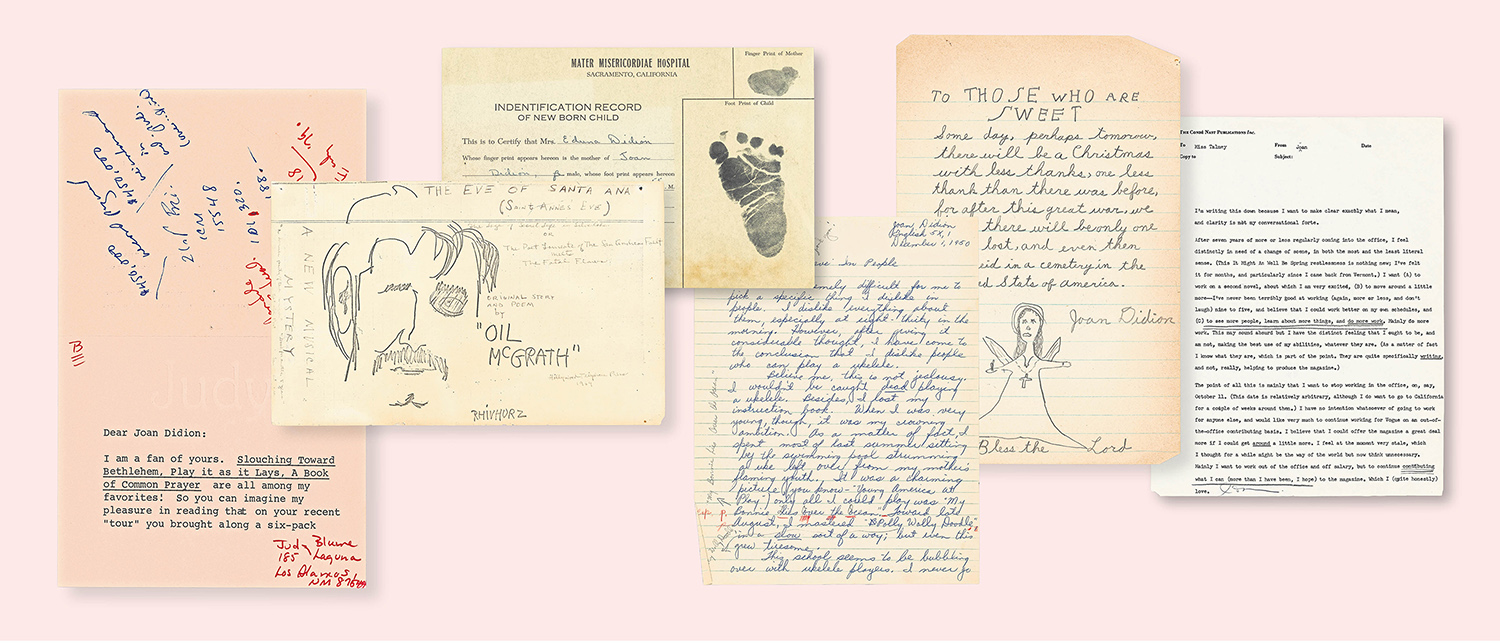 $450,000
second Draft
$450,000
in
2 (a) Pri.
1CM
15548
101 320.
88.
B
III
Dear Joan Didion:
I am a fan of yours. Slouching Toward
Bethlehem, Play it as it Lays, A Book
of Common Prayer are all among my
favorites! So you can imagine my
pleasure in reading that on your recent
"tour" you brought along a six-pack
Judy Blume
185 Laguna
Los Alamos
NM 87544
THE EVE OF SANTA ANA
(SAINT ANNES EVE)
OR
The Past Laureate of The San Andreas Fault
meets
The Fatal Flaw
A NEW MUSICAL
MYSTERY
ORIGINAL STORY
AND POEM
BY
"OIL
McGRATH"
RHIVHORZ
MATER MISERICORDIAE HOSPITAL
SACRAMENTO, CALIFORNIA
INDENTIFICATION RECORD
OF NEW BORN CHILD
This is to Certify that Mrs. Eduna Didion
Whose finger print appears hereon is the mother of Joan
Didion, fe male, whose foot print appears hereon
M.
Finger Print of Mother
Foot Print of Child
Joan Didion
English 5X, 1
December 1, 1950
In People
difficult for me to
pick a specific thing I dislike in
people. I dislike everything about
them, especially at eight-thirty in the
morning. However, after giving it
considerable thought, I have come to
the conclusion that I dislike people
who can play a ukelele.
Believe me, this is not jealousy.
I wouldn't be caught dead playing
a ukelele. Besides, I lost my
instruction book. When I was very
young, though, it was my crowning
ambition. As a matter of fact, I
spent most of last summer sitting
by the swimming pool strumming
a uke left over from my mother's
flaming youth. It was a charming
picture (you know - "Young America at
Play") only all I could play was "My
Bonnie Lies over the Ocean." Toward late
August, I mastered "Polly Wolly Doodle"
in a slow sort of a way; but even this
grew tiresome.
This school seems to be bubbling
over with ukelele players. I never go
TO THOSE WHO ARE
SWEET
Some day, perhaps tomorow,
there will be a Christmas
with less thanks, one less
thank than there was before,
for after this great war, we
there will be only one
lost, and even then
eid in a cemetery in the
ed Stats of america.
Joan Didion
Bless the Lord
THE CONDÉ NAST PUBLICATIONS INC.
To Miss Talmey From Joan Date
Copy to Subject:
I'm writing this down because I want to make clear exactly what I mean,
and clarity is not my conversational forte.
After seven years of more or less regularly coming into the office, I feel
distinctly in need of a change of scene, in both the most and the least literal
sense. (This It Might As Well Be Spring restlessness is nothing new; I've felt
it for months, and particularly since I came back from Vermont.) I want (A) to
work on a second novel, about which I am very excited, (B) to move around a little
more--I've never been terribly good at working (again, more or less, and don't
laugh) nine to five, and believe that I could work better on my own schedules, and
(C) to see more people, learn about more things, and do more work. Mainly do more
work. This may sound absurd but I have the distinct feeling that I ought to be, and
am not, making the best use of my abilities, whatever they are. (As a matter of fact
I know what they are, which is part of the point. They are quite specifically writing,
and not, really, helping to produce the magazine.)
The point of all this is mainly that I want to stop working in the office, on, say,
October 11. (This date is relatively arbitrary, although I do want to go to California
for a couple of weeks around then.) I have no intention whatsoever of going to work
for anyone else, and would like very much to continue working for Vogue on an out-of-
the-office contributing basis. I believe that I could offer the magazine a great deal
more if I could get around a little more. I feel at the moment very stale, which
I thought for a while might be the way of the world but now think unnecessary.
Mainly I want to work out of the office and off salary, but to continue contibuting
what I can (more than I have been, I hope) to the magazine. Which I (quite honestly)
love.